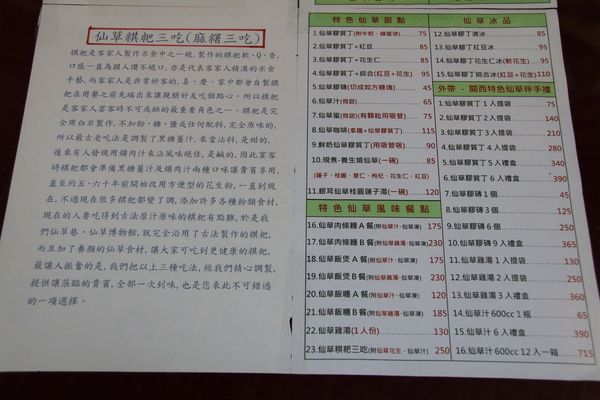 仙草粄粑三吃(麻糬三吃)
粄粑是客家人製作米食中之一絕,製作的粄粑軟、Q、香、
口感一直為國人讚不絕口,亦是代表客家人精湛的米食
手藝,而客家人是非常好客的,喜、慶、家中都會自製粄粑
在用餐之前先端出來讓親朋好友吃個點心。所以粄粑
是客家人宴客時不可或缺的最重要角色之一。粄粑是完
全用白米製作,不加粉、糖、鹽或任何配料,完全原味的,
所以最古老吃法是調製了黑糖薑汁,來當沾料,是甜的,
後來有人發現用爌肉汁來沾風味絕佳,是鹹的,因此宴客
時粄粑都會準備黑糖薑汁及爌肉汁兩種口味讓貴賓享用,
直至約五、六十年前開始改用方便型的花生粉,一直到現
在,不過現在很多粄粑都變了調,添加許多各種粉類食材,
現在的人要吃得到古法原汁原味的粄粑有點難,於是我
們仙草藝、仙草博物館,就完全沿用了古法製作的粄粑,
而且加了養顏的仙草食材,讓大家可吃到更健康的粄粑,
最讓人振奮的是,我們把以上三種吃法,經我們精心調製,
提供讓蒞臨的貴賓,全部一次到味,也是您來此不可錯過
的一項選擇。
特色仙草甜點
1.仙草膠質丁(附牛奶、蜂蜜球) 75
2.仙草膠質丁+紅豆 85
3.仙草膠質丁+花生仁 85
4.仙草膠質丁+綜合(紅豆+花生) 95
5.仙草膠磚(切成如方糖塊) 75
6.仙草汁(微甜) 65
7.仙草蜜(微甜)(有顆粒用吸管) 75
8.仙草咖啡(拿鐵+仙草膠質丁) 115
9.鮮奶仙草膠質丁(用吸管吸) 90
10.現煮-養生燒仙草(一碗) 85
(蓮子、桂圓、薏仁、枸杞、花生仁、紅豆)
11.銀耳仙草桂圓蓮子湯(一碗) 120
特色仙草風味餐點
16.仙草肉條麵A餐(附仙草汁、仙草凍) 180
17.仙草肉條麵B餐(附仙草雞湯、仙草凍) 230
18.仙草飯煲A餐(附仙草汁、仙草凍) 175
19.仙草飯煲B餐(附仙草雞湯、仙草凍) 230
20.仙草飯糰A餐(附仙草汁、仙草凍) 125
21.仙草飯糰B餐(附仙草雞湯、仙草凍) 185
22.仙草雞湯(1人份) 130
23.仙草粄粑三吃(附仙草花生、仙草汁) 250
仙草冰品
12.仙草膠丁清冰 85
13.仙草膠丁紅豆冰 95
14.仙草膠丁花生仁冰(軟花生) 95
15.仙草膠丁綜合冰(紅豆+花生) 110
外帶-關西特色仙草伴手禮
1.仙草膠質丁1人提袋 75
2.仙草膠質丁2人提袋 145
3.仙草膠質丁3人提袋 210
4.仙草膠質丁4人提袋 280
5.仙草膠質丁5入禮盒 340
6.仙草膠質丁6入禮盒 390
7.仙草膠磚1個 45
8.仙草膠磚3個 125
9.仙草膠磚6個 245
10.仙草膠磚9入禮盒 365
11.仙草雞湯1人提袋 130
12.仙草雞湯2人提袋 250
13.仙草雞湯3人禮盒 360
14.仙草汁600cc 1瓶 65
15.仙草汁6入禮盒 390
16.仙草汁600cc 12入一箱 715